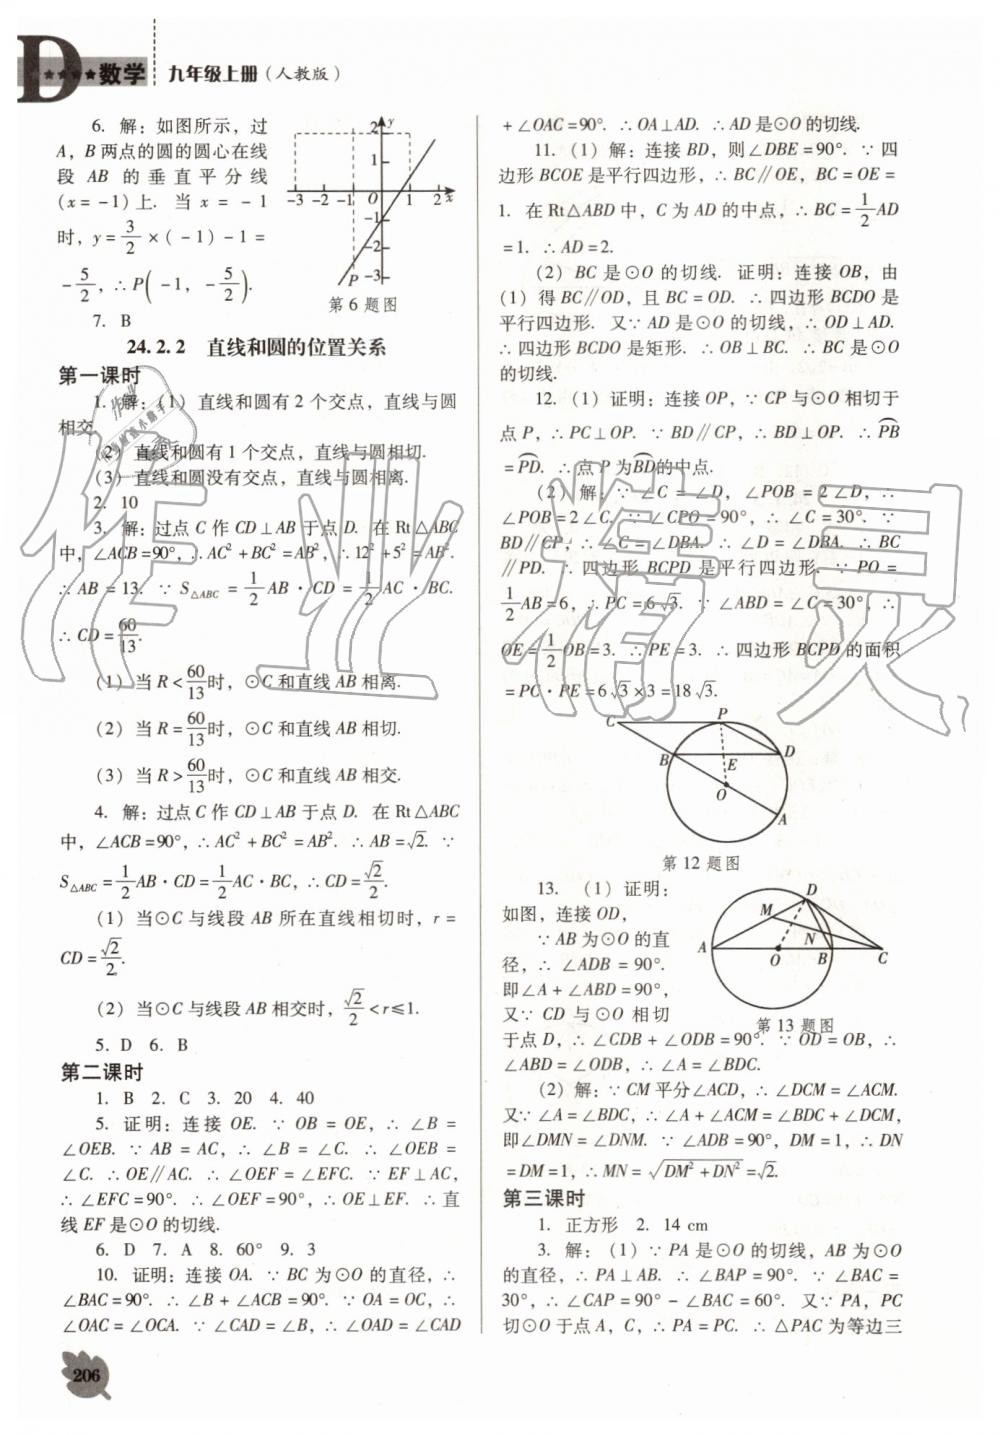 D ★★★★★ 数学 九年级上册（人教版）
6. 解：如图所示，过
A，B 两点的圆的圆心在线
段 AB 的垂直平分线
(x=-1)上. 当 x = -1
时，y=3/2×(-1)-1=
-5/2，∴P(-1，-5/2).
y
2
1
-3 -2 -1 O 1 2 x
-1
-2
P -3
第 6 题图
7. B
24.2.2 直线和圆的位置关系
第一课时
1. 解：(1) 直线和圆有 2 个交点，直线与圆
相交.
(2) 直线和圆有 1 个交点，直线与圆相切.
(3) 直线和圆没有交点，直线与圆相离.
2. 10
3. 解：过点 C 作 CD⊥AB 于点 D. 在 Rt△ABC
中，∠ACB=90°，∴AC²+BC²=AB²，∴12²+5²=AB².
∴AB=13. ∵S△ABC=1/2AB·CD=1/2AC·BC.
∴CD=60/13.
(1) 当 R<60/13时，⊙C 和直线 AB 相离.
(2) 当 R=60/13时，⊙C 和直线 AB 相切.
(3) 当 R>60/13时，⊙C 和直线 AB 相交.
4. 解：过点 C 作 CD⊥AB 于点 D. 在 Rt△ABC
中，∠ACB=90°，∴AC²+BC²=AB². ∴AB=√2. ∵
S△ABC=1/2AB·CD=1/2AC·BC，∴CD=√2/2.
(1) 当⊙C 与线段 AB 所在直线相切时，r=
CD=√2/2.
(2) 当⊙C 与线段 AB 相交时，√2/2<r≤1.
5. D 6. B
第二课时
1. B 2. C 3. 20 4. 40
5. 证明：连接 OE. ∵ OB=OE，∴ ∠B=
∠OEB. ∵ AB=AC，∴ ∠B=∠C. ∴ ∠OEB=
∠C. ∴OE∥AC. ∴∠OEF=∠EFC. ∵EF⊥AC，
∴∠EFC=90°. ∴∠OEF=90°，∴OE⊥EF. ∴直
线 EF 是⊙O 的切线.
6. D 7. A 8. 60° 9. 3
10. 证明：连接 OA. ∵ BC 为⊙O 的直径，∴
∠BAC=90°. ∴∠B+∠ACB=90°. ∵OA=OC，∴
∠OAC=∠OCA. ∵∠CAD=∠B，∴∠OAD=∠CAD
+∠OAC=90°. ∴OA⊥AD. ∴AD 是⊙O 的切线.
11. (1) 解：连接 BD，则∠DBE=90°. ∵四
边形 BCOE 是平行四边形，∴BC∥OE，BC=OE=
1. 在 Rt△ABD 中，C 为 AD 的中点，∴BC=1/2AD
=1. ∴AD=2.
(2) BC 是⊙O 的切线. 证明：连接 OB，由
(1) 得 BC∥OD，且 BC=OD. ∴四边形 BCDO 是
平行四边形. 又∵AD 是⊙O 的切线，∴OD⊥AD.
∴四边形 BCDO 是矩形. ∴OB⊥BC. ∴BC 是⊙O
的切线.
12. (1) 证明：连接 OP，∵CP 与⊙O 相切于
点 P，∴PC⊥OP. ∵BD∥CP，∴BD⊥OP. ∴P͡B
=P͡D. ∴点 P 为B͡D的中点.
(2) 解：∵∠C=∠D，∠POB=2∠D，∴
∠POB=2∠C. ∵∠CPO=90°，∴∠C=30°. ∵
BD∥CP，∴∠C=∠DBA. ∴∠D=∠DBA. ∴BC
∥PD. ∴四边形 BCPD 是平行四边形. ∵PO=
1/2AB=6，∴PC=6√3. ∵∠ABD=∠C=30°，∴
OE=1/2OB=3. ∴PE=3. ∴四边形 BCPD 的面积
=PC·PE=6√3×3=18√3.
C P
B E D
O
A
第 12 题图
13. (1) 证明：
如图，连接 OD，
∵AB 为⊙O 的直
径，∴∠ADB=90°.
即∠A+∠ABD=90°，
又∵CD 与⊙O 相切
D
M
A O N B C
第 13 题图
于点 D，∴∠CDB+∠ODB=90°. ∵OD=OB，∴
∠ABD=∠ODB，∴∠A=∠BDC.
(2) 解：∵CM 平分∠ACD，∴∠DCM=∠ACM.
又∵∠A=∠BDC，∴∠A+∠ACM=∠BDC+∠DCM，
即∠DMN=∠DNM. ∵∠ADB=90°，DM=1，∴DN
=DM=1，∴MN=√(DM²+DN²)=√2.
第三课时
1. 正方形 2. 14 cm
3. 解：(1) ∵PA 是⊙O 的切线，AB 为⊙O
的直径，∴PA⊥AB. ∴∠BAP=90°. ∵∠BAC=
30°，∴∠CAP=90°-∠BAC=60°. 又∵PA，PC
切⊙O 于点 A，C，∴PA=PC. ∴△PAC 为等边三
206
作业精灵